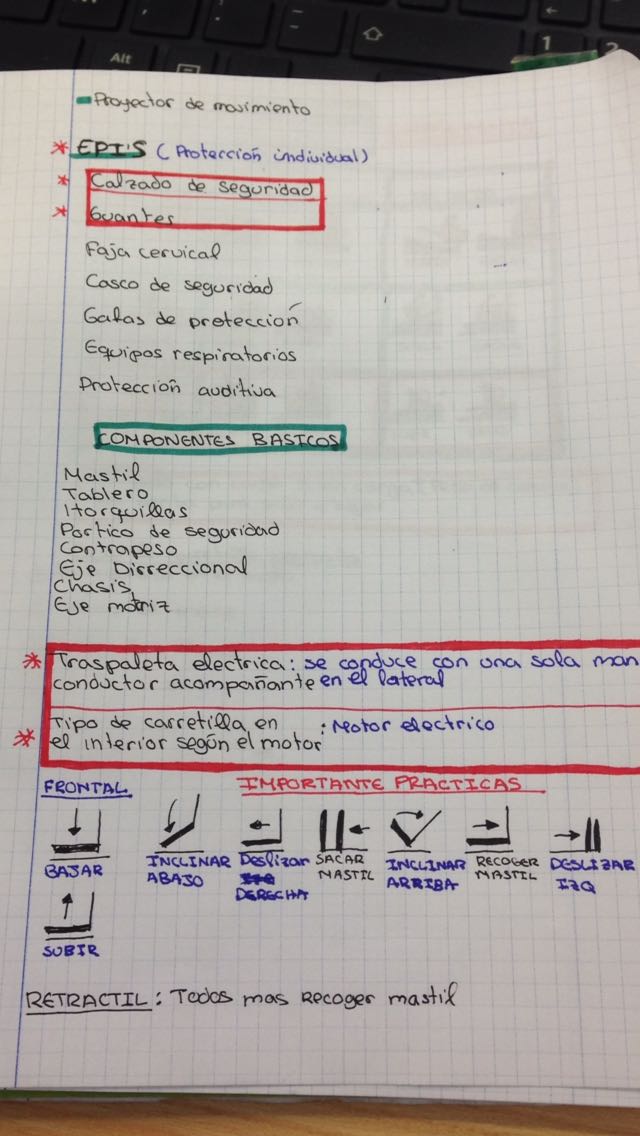 Alt
1
2
- Proyector de movimiento
* EPI'S (Protección individual)
* Calzado de seguridad
* Guantes
Faja cervical
Casco de seguridad
Gafas de protección
Equipos respiratorios
Protección auditiva
COMPONENTES BASICOS
Mastil
Tablero
Horquillas
Portico de seguridad
Contrapeso
Eje Dirreccional
Chasis
Eje motriz
* Traspaleta electrica: se conduce con una sola man
conductor acompañante en el lateral
Tipo de carretilla en : Motor electrico
* el interior según el motor
FRONTAL IMPORTANTE PRACTICAS
BAJAR
INCLINAR
ABAJO
Deslizar
DERECHA
SACAR
MASTIL
INCLINAR
ARRIBA
RECOGER
MASTIL
DESLIZAR
IZQ
SUBIR
RETRACTIL: Todos mas Recoger mastil